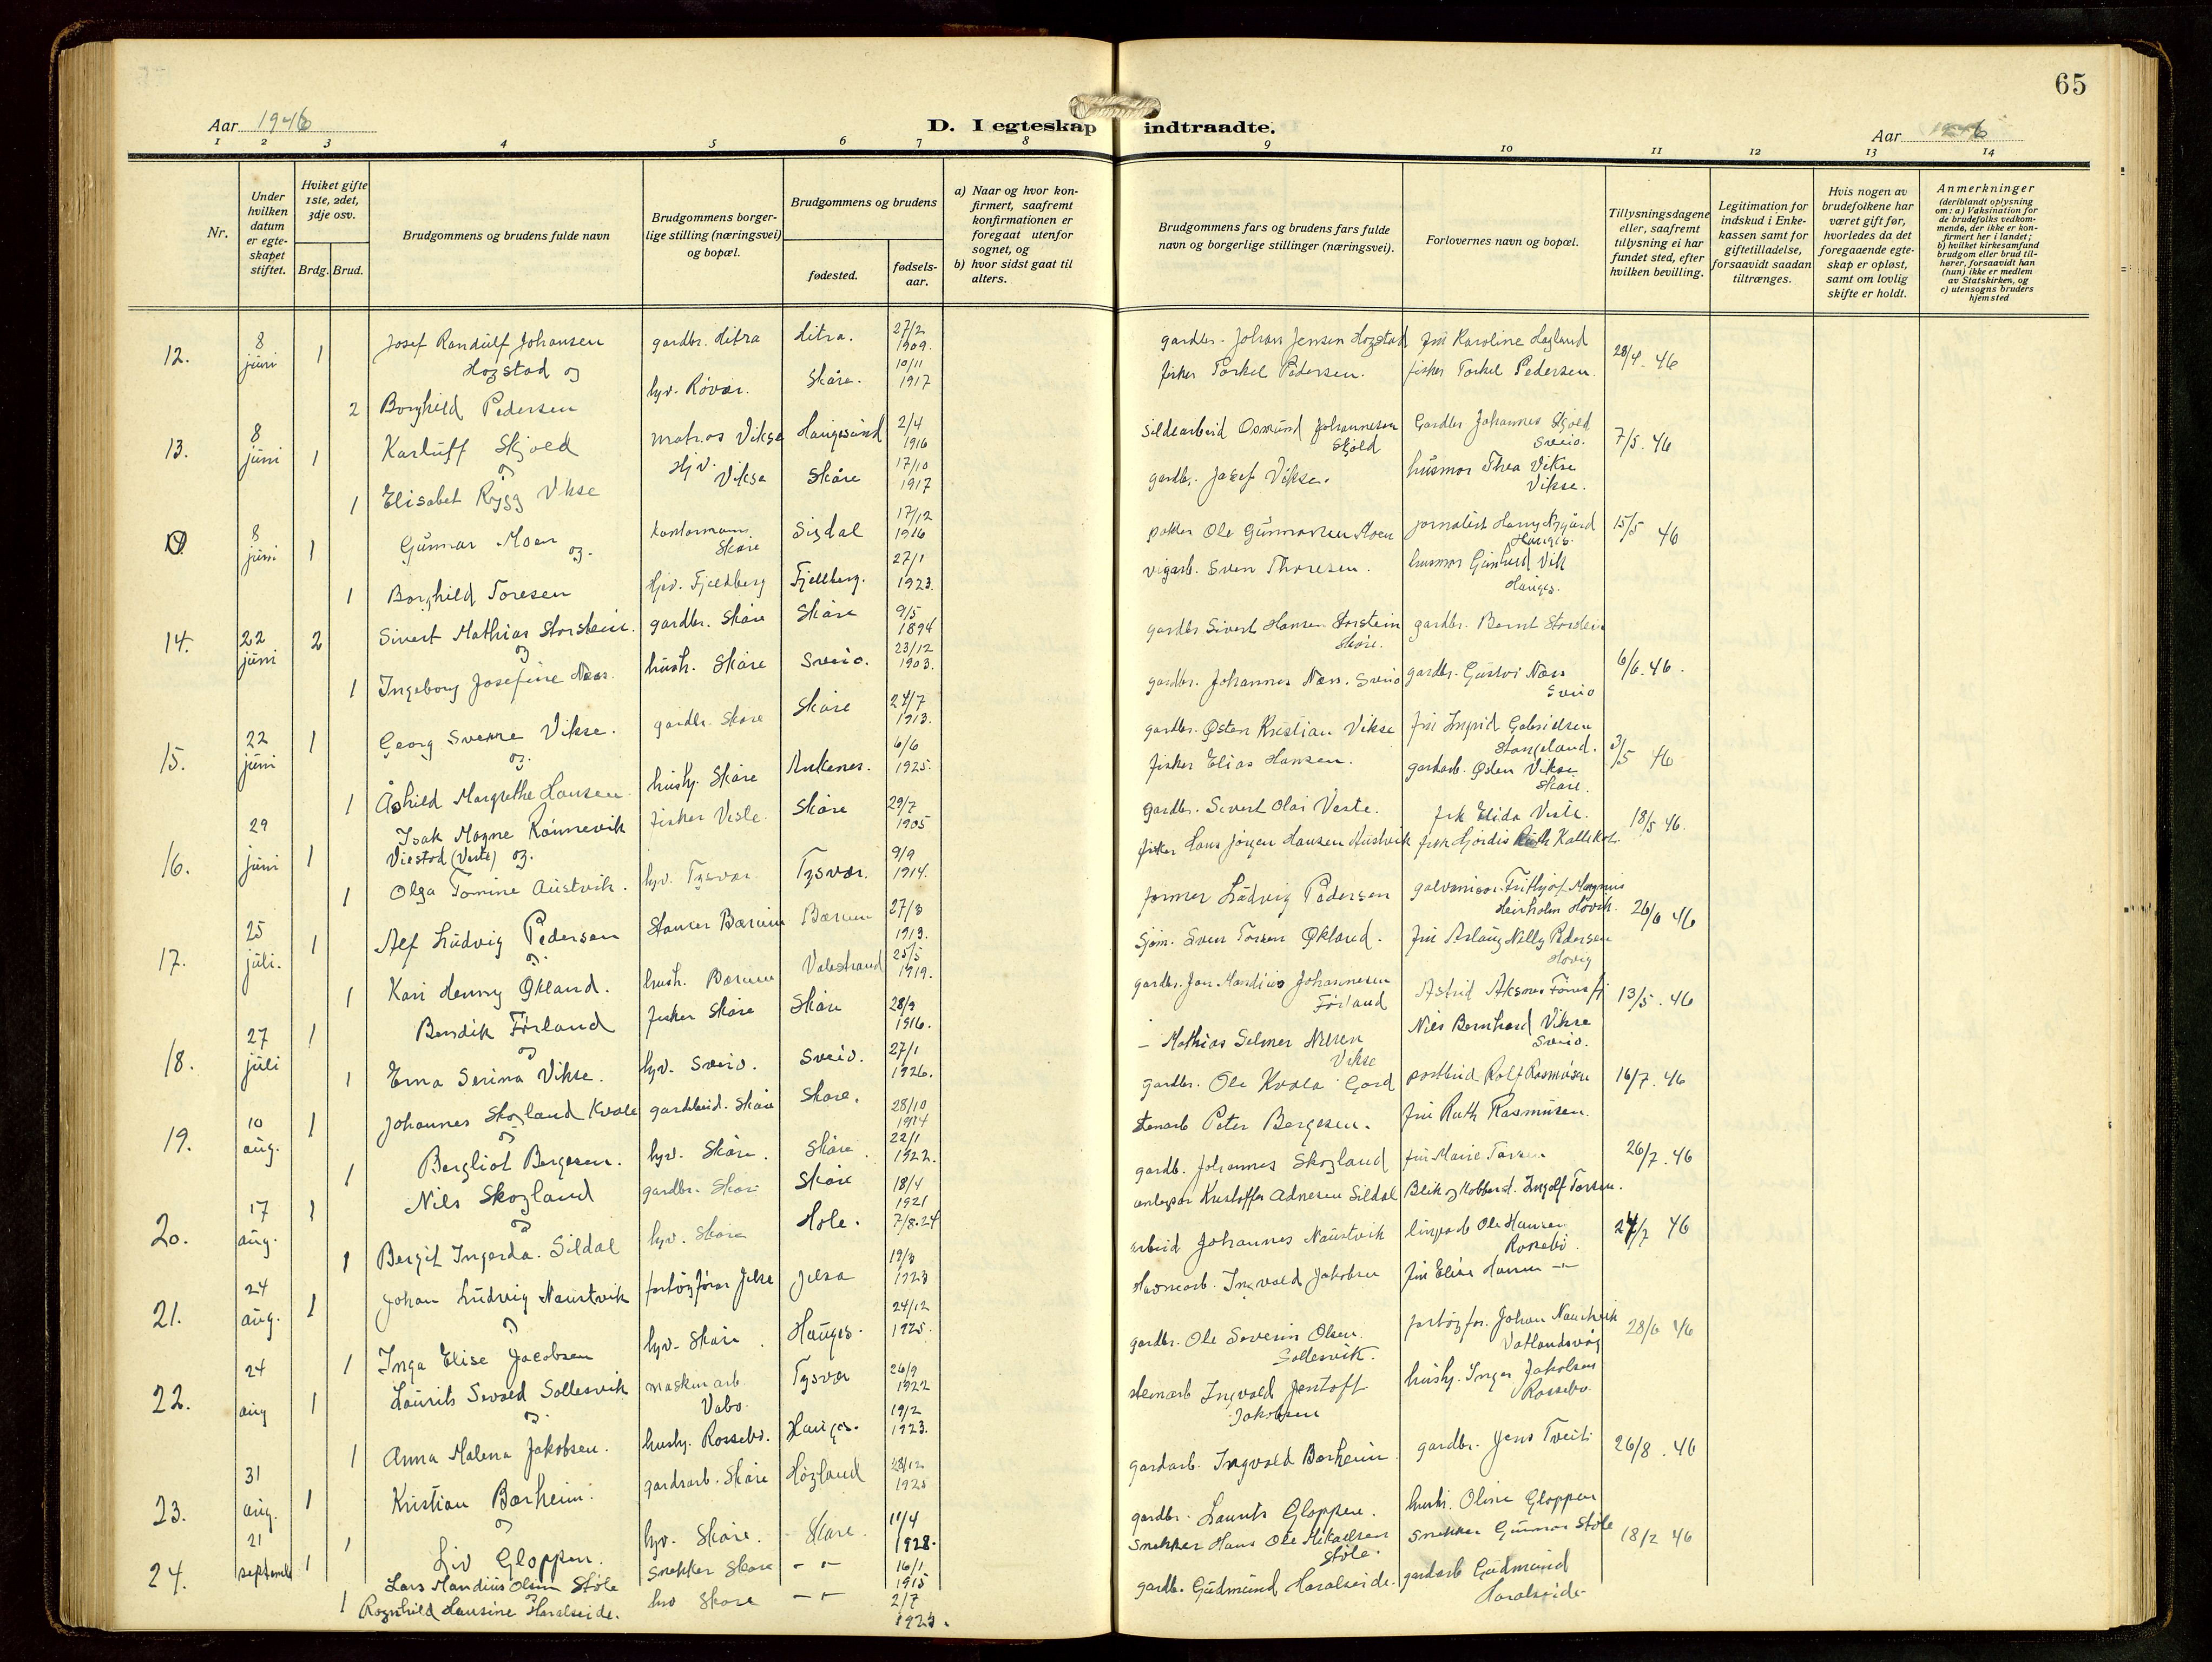 65
Aar 1946
D. I egteskap indtraadte.
Aar 1946
1 2 3 4 5 6 7 8 9 10 11 12 13 14
Nr.
Under hvilken datum er egte-skapet stiftet.
Hviket gifte 1ste, 2det, 3dje osv.
Brdg. Brud.
Brudgommens og brudens fulde navn
Brudgommens borger-lige stilling (næringsvei) og bopæl.
Brudgommens og brudens
fødested.
fødsels-aar.
a) Naar og hvor kon-firmert, saafremt konfirmationen er foregaat utenfor sognet, og
b) hvor sidst gaat til alters.
Brudgommens fars og brudens fars fulde navn og borgerlige stillinger (næringsvei).
Forlovernes navn og bopæl.
Tillysningsdagene eller, saafremt tillysning ei har fundet sted, efter hvilken bevilling.
Legitimation for indskud i Enke-kassen samt for giftetilladelse, forsaavidt saadan tiltrænges.
Hvis nogen av brudefolkene har været gift før, hvorledes da det foregaaende egte-skap er opløst, samt om lovlig skifte er holdt.
Anmerkninger (deriblandt oplysning om: a) Vaksination for de brudefolks vedkom-mende, der ikke er kon-firmert her i landet; b) hvilket kirkesamfund brudgom eller brud til-hører, forsaavidt han (hun) ikke er medlem av Statskirken, og c) utensogns bruders hjemsted
12. 8 juni 1 Josef Randulf Johansen Hogstad og gardbr. Hitra Hitra. 27/2 1909. gardbr. Johan Jensen Hogstad fru Karoline Hagland 28/4. 46
2 Borghild Pedersen hjv. Røvær. Skåre. 10/11 1917 fisker Torkel Pedersen. fisker Torkel Pedersen.
13. 8 juni 1 Karluff Skjold og matros Vikse Haugesund 2/4 1916 Sildearbeid Osmund Johannesen Skjold Gardbr Johannes Skjold Sveio. 7/5. 46
1 Elisabet Rygg Vikse Hjv. Vikse Skåre 17/10 1917 gardbr. Josef Vikse. husmor Thea Vikse Vikse.
8 juni 1 Gunnar Moen og. kontormann Skåre Sigdal 17/12 1916 Ole Gunnarsen Moen jornalist Harry Hauges. 15/5 46
1 Borghild Toresen hjv. Fjeldberg Fjellberg. 27/1 1923. vegarb. Sven Thoresen. husmor Gunhild Vik Hauges.
14. 22 juni 2 Sivert Mathias Storstein. og gardbr. Skåre Skåre 9/5 1894 gardbr Sivert Hansen Storstein Skåre. gardbr. Bernt Storstein 6/6. 46.
1 Ingeborg Josefine Næs. hush. Skåre Sveio. 23/12 1903. gardbr. Johannes Næss. Sveio gardbr. Gustav Næss Sveio
15. 22 juni 1 Georg Sverre Vikse. og. gardbr. Skåre Skåre 24/7 1913. gardbr. Østen Kristian Vikse fru Ingrid Gabrielsen Stangeland. 3/5 46
1 Åshild Margrethe Hansen hushj. Skåre Ankenes. 6/6 1925. fisker Elias Hansen. gardarb. Østen Vikse Skåre.
16. 29 juni 1 Isak Magne Rønnevik Viestad (Veste) og. fisker Veste. Skåre 29/7 1905 gardbr. Sivert Olai Veste. frk Elida Veste. 18/5 46.
1 Olga Tomine Austvik. hjv. Tysvær. Tysvær. 9/9 1914. fisker Hans Jørgen Hansen Austvik frk Hjørdis Ruth
17. 25 juli. 1 Alf Ludvig Pedersen og. Bærum Bærum 27/3 1913. former Ludvig Pedersen galvanisør. Frithjof Magnus Høvik. 26/6 46
1 Kari Henny Økland. hush. Bærum Valestrand 25/5 1919. sjøm. Sven Torsen Økland. fru Aslaug Nelly Pedersen Høvig
18. 27 juli 1 Bendik Førland og fisker Skåre Skåre 28/3 1916. gardbr. Jan Mandius Johannesen Førland Astrid 13/5. 46
1 Erna Serina Vikse. hjv. Sveio. Sveio. 27/1 1926. – Mathias Selmer Nilsen Vikse Nils Bernhard Vikse Sveio.
19. 10 aug. 1 Johannes Skogland Kvale og gardarbeid. Skåre Skåre. 28/10 1914 gardbr. Ole Kvala Gard postbud Rolf Rasmusen 16/7. 46
1 Bergliot Bergesen. hjv. Skåre. Skåre. 22/1 1922. stenarb Peter Bergesen. fru Ruth Rasmusen.
20. 17 aug. 1 Nils Skogland og gardbr. Skåre Skåre 18/4 1921 gardb. Johannes Skogland fru Marie Torsen 26/7. 46
1 Bergit Ingerda. Sildal hjv. Skåre Hole. 7/8.24 Kristoffer Adnesen Sildal Blik og Kobbersl. Ingolf Torsen.
21. 24 aug. 1 Johan Ludvig Naustvik og fartøyfører Jelsa Jelsa 19/3 1923 arbeid Johannes Naustvik Ole Hansen Rossebø. 24/7 46
1 Inga Elise Jacobsen hjv. Skåre. Hauges. 24/12 1925. Havnearb. Ingvald Jakobsen fru Elise Hansen –"–
22. 24 aug 1 Laurits Sevald Sollesvik og. maskinarb. Vabø. Tysvær 26/9 1922 gardbr. Ole Severin Olsen. Sollesvik. fartøyfør. Johan Naustvik Vatlandsvåg 28/6 46
1 Anna Malena Jakobsen. hushj. Rossebø. Hauges. 19/2 1923. stenarb Ingvald Jentoft Jakobsen hushj. Inger Jakobsen Rossebø
23. 31 aug. 1 Kristian Børheim. og gardsarb. Skåre Høgland 28/12 1925 gardarb. Ingvald Børheim gardbr. Jens Tveit 26/8. 46
1 Liv Gloppen. hjv. Skåre. Skåre. 11/4 1928. gardbr. Laurits Gloppen. hustr. Oline Gloppen
24. 21 september 1 Lars Mandius Olsen Støle og Snekker Skåre –"– 16/1 1915 Snekker Hans Ole Mikaelsen Støle. snekker Gunnar Støle 18/2 46
1 Ragnhild Hansine Haralseide. hjv Skåre –"– 2/7 1923. gardb. Gudmund Haralseide. gardarb Gudmund Haralseide